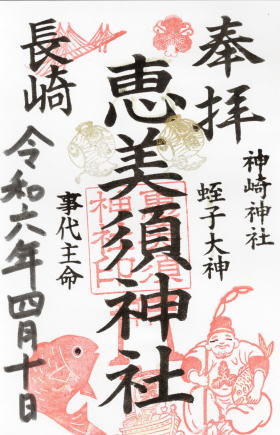 奉拝
神崎神社
蛭子大神
恵美須神社
事代主命
長崎
令和六年四月十日